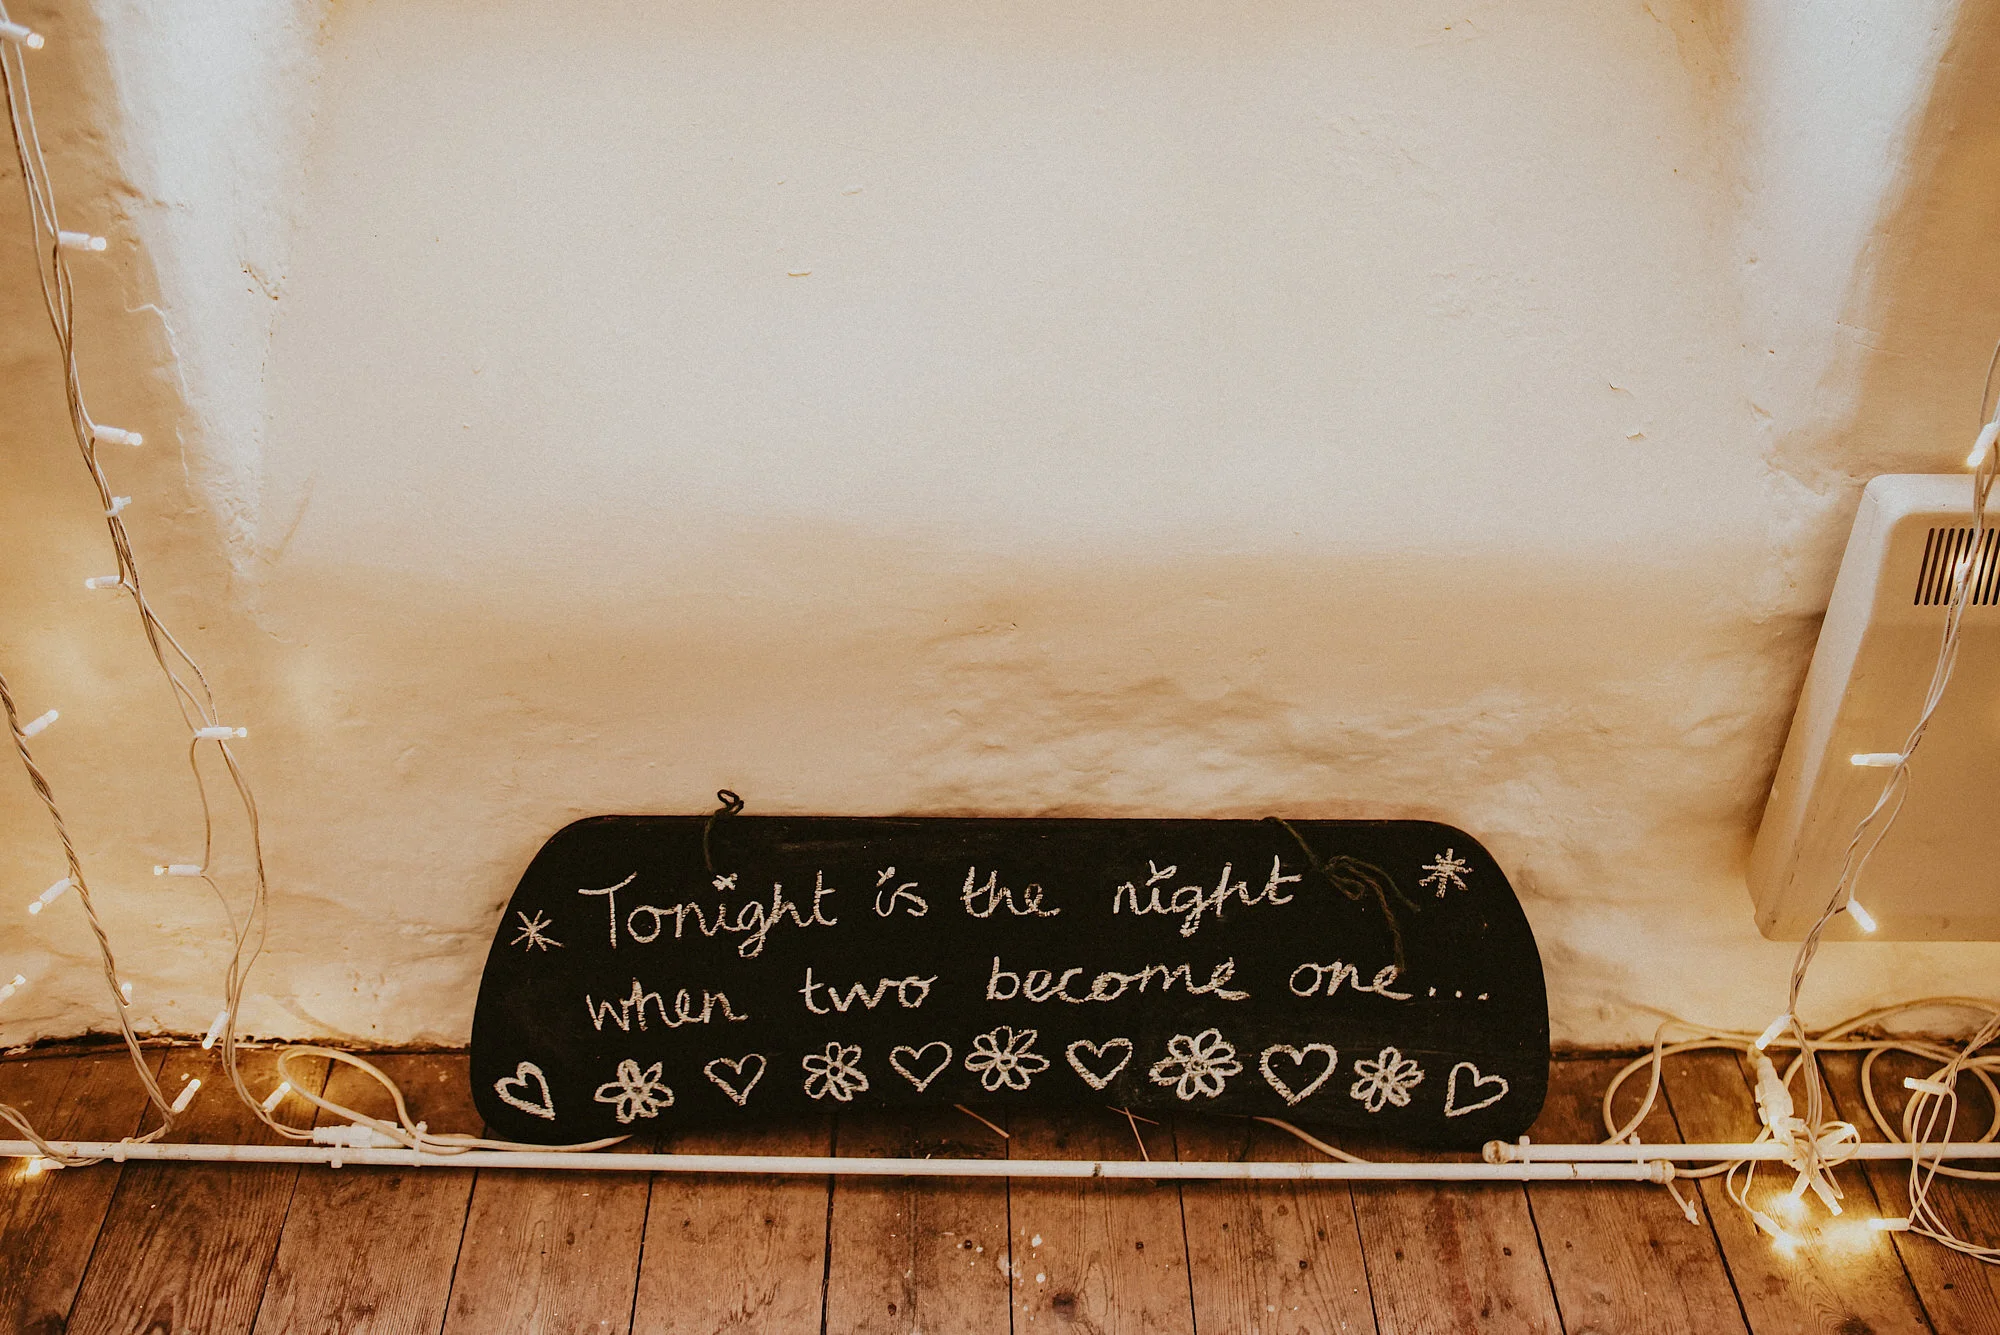 Tonight is the night
when two become one...